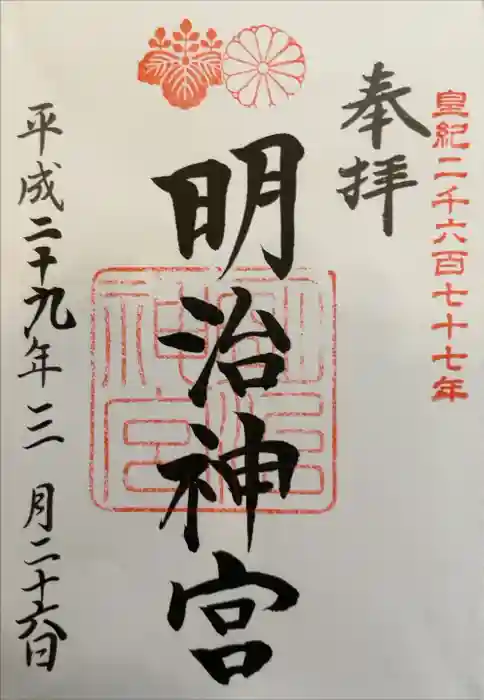 皇紀二千六百七十七年
奉拝
明治神宮
明治神宮
平成二十九年三月二十六日